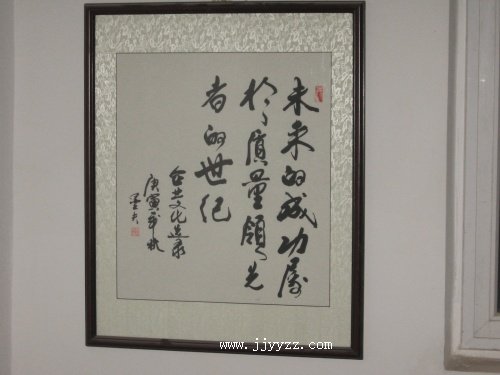 未来的成功属
於质量领先
者的世纪
企业文化选录
庚寅年秋
www.jjyyzz.com